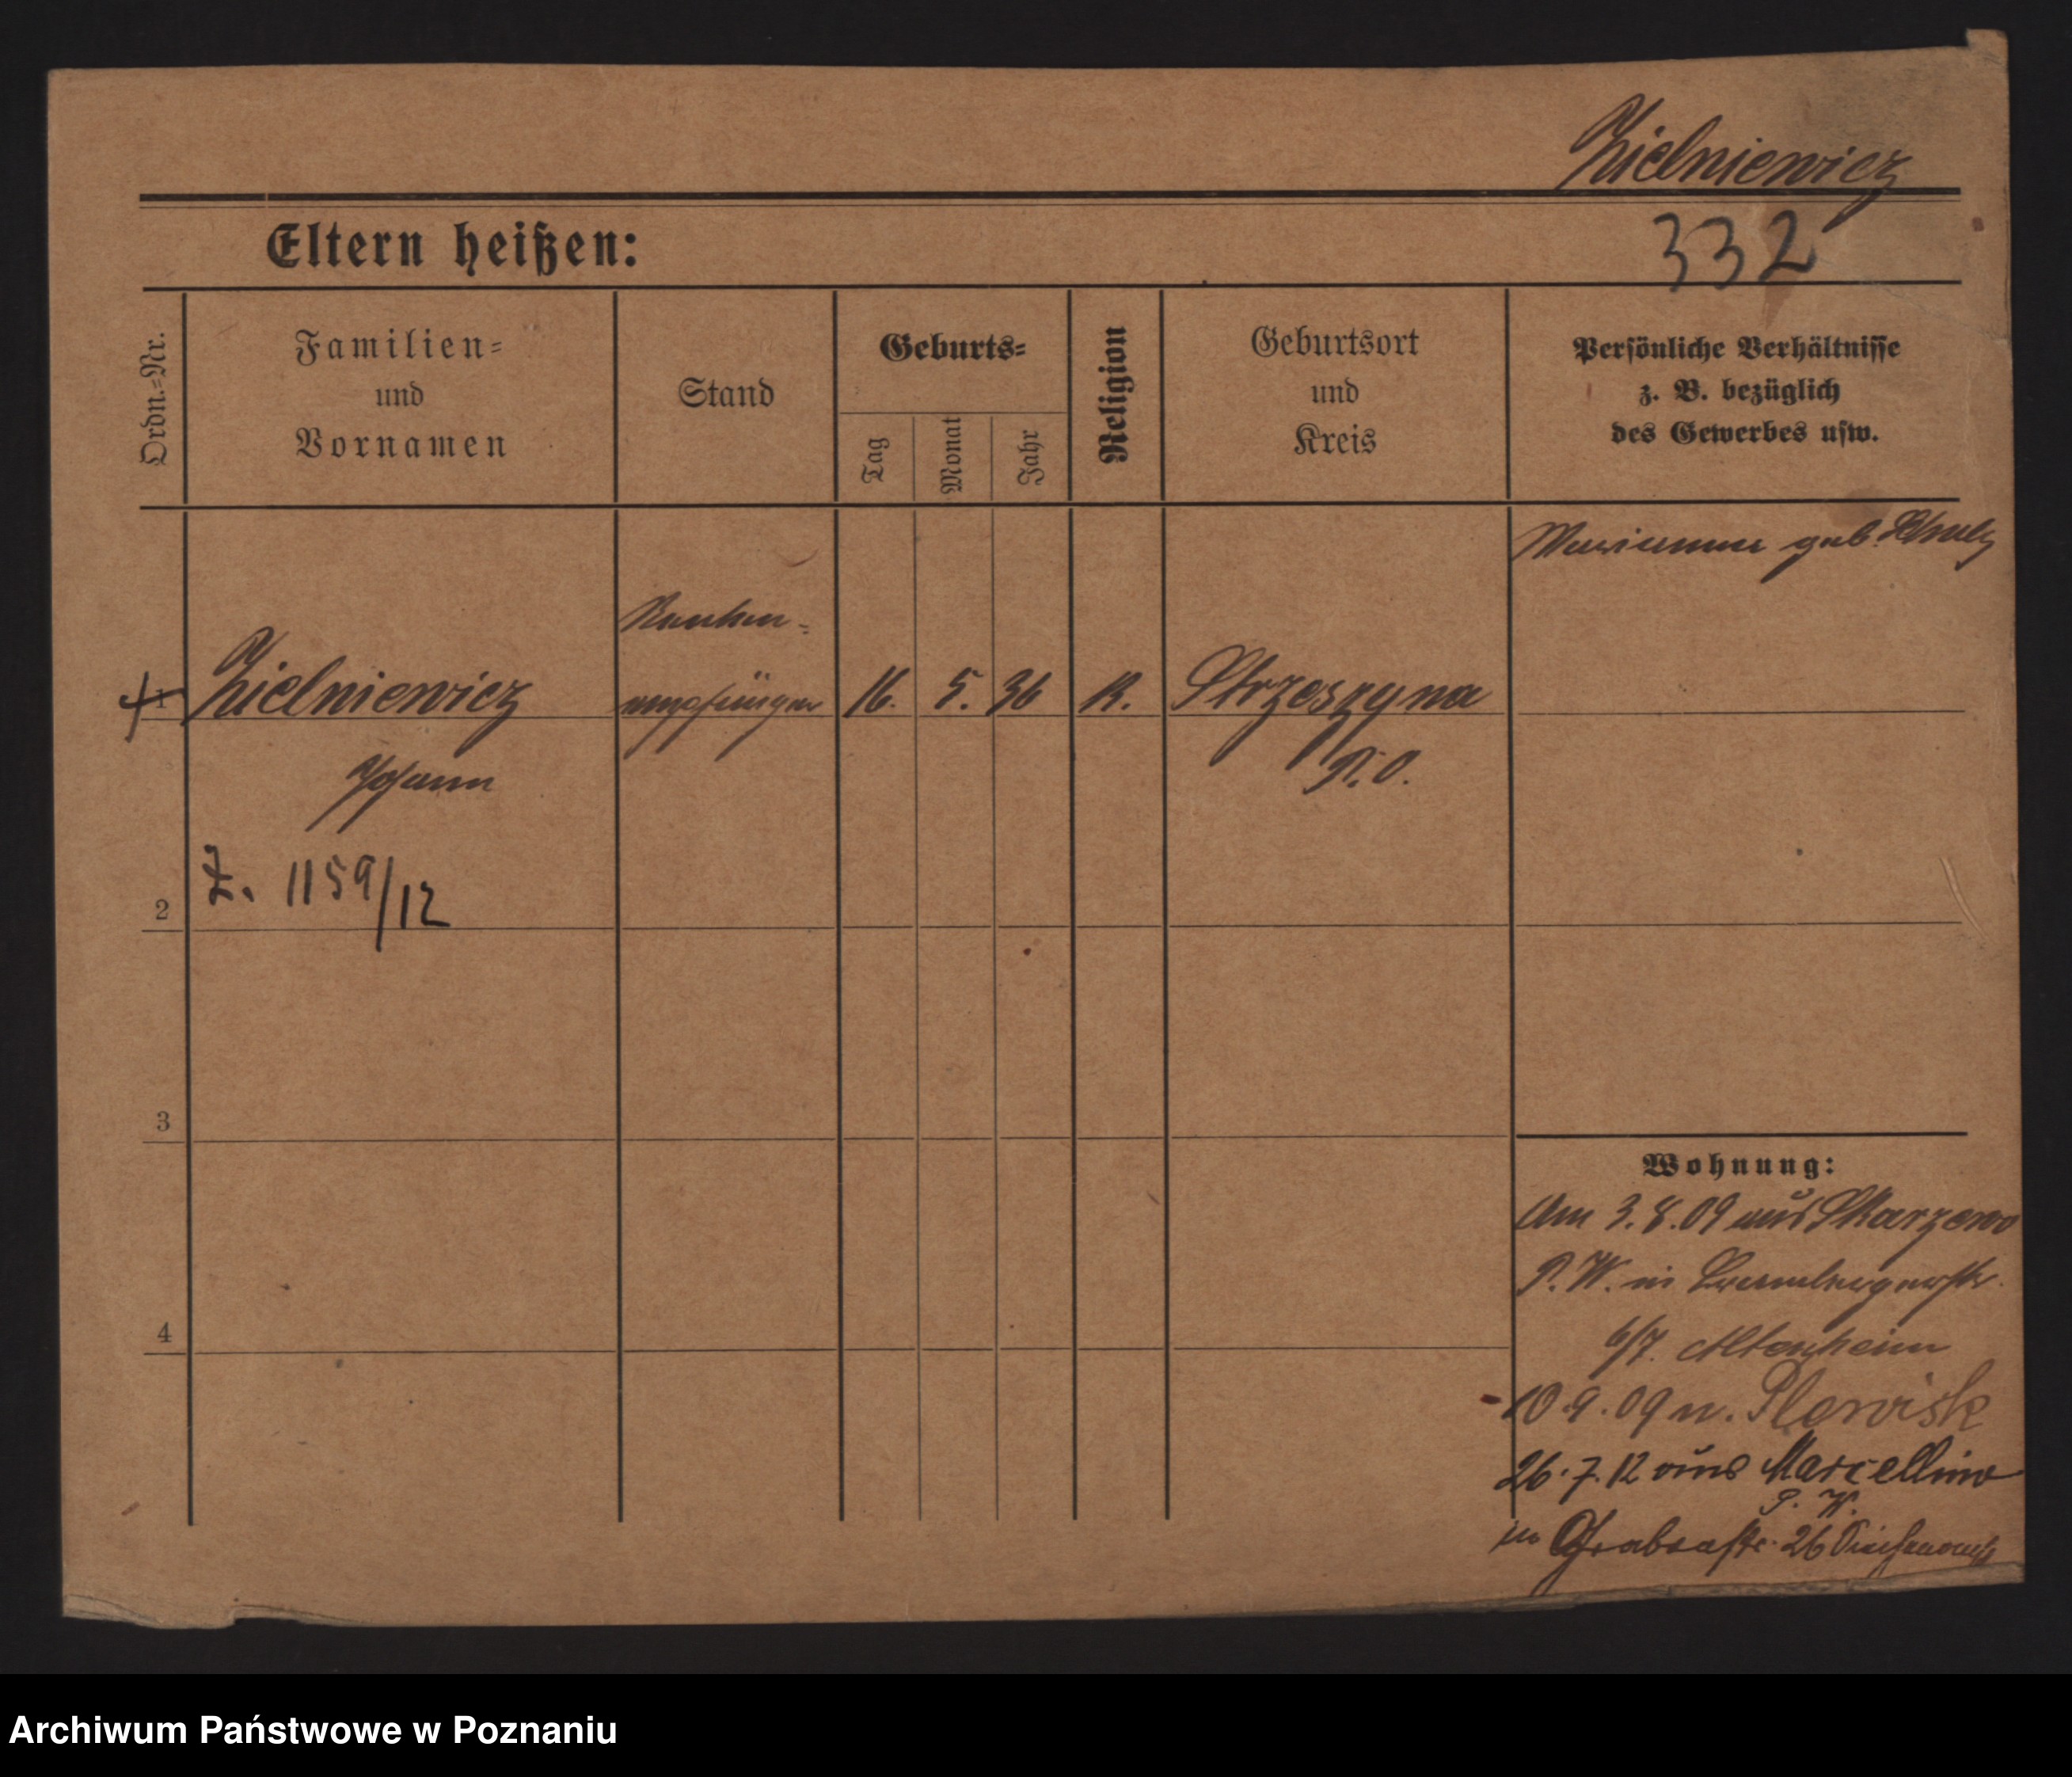 Zielniewicz
332
Eltern heißen:
Ordn.=Nr.
Familien=
und
Vornamen
Stand
Geburts=
Tag
Monat
Jahr
Religion
Geburtsort
und
Kreis
Persönliche Verhältnisse
z. B. bezüglich
des Gewerbes usw.
Marianna geb.
Renten=
1 Zielniewicz empfänger 16. 5. 36 K. Strzeszyna
Johann P. O.
2 Z. 1159/12
3
4
Wohnung:
Am 3.8.09 aus Skarzewo
P. W. in
6/7. Altenheim
10.9.09 n. Plewisk
26.7.12 aus Marcellino
P. W.
in Grabenstr. 26
Archiwum Państwowe w Poznaniu